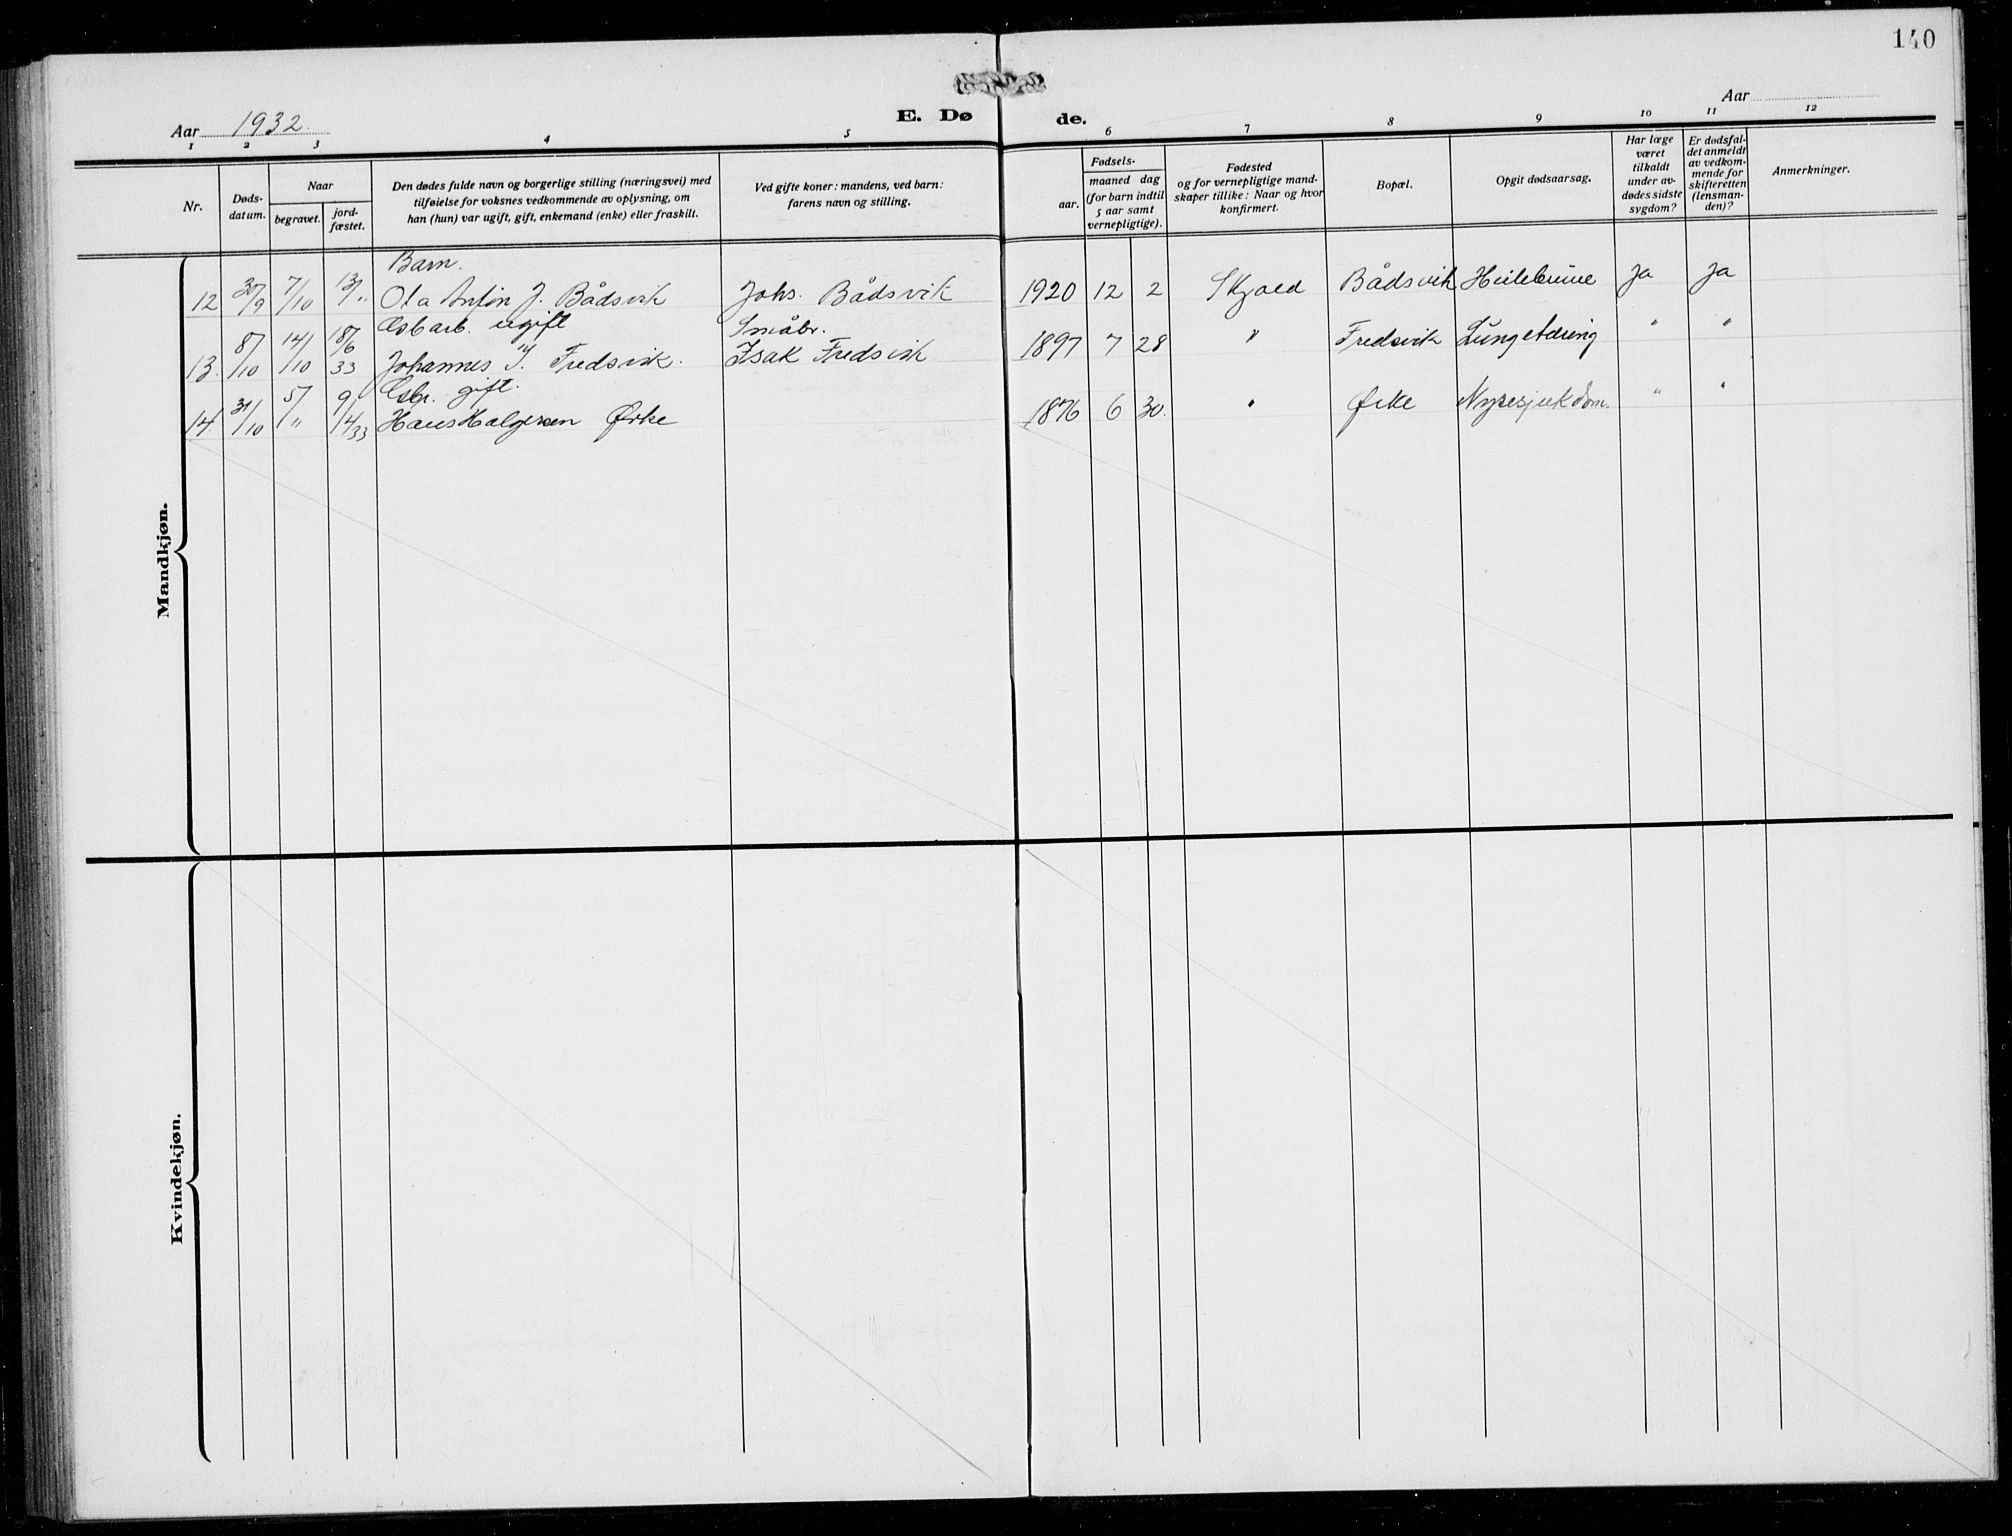 140
E. Dø de.
Aar 1932. Aar
1 2 3 4 5 6 7 8 9 10 11 12
Nr.
Døds-
datum.
Naar
begravet.
jord-
fæstet.
Den dødes fulde navn og borgerlige stilling (næringsvei) med
tilføielse for voksnes vedkommende av oplysning, om
han (hun) var ugift, gift, enkemand (enke) eller fraskilt.
Ved gifte koner: mandens, ved barn:
farens navn og stilling.
Fødsels-
aar.
maaned dag
(for barn indtil
5 aar samt
vernepligtige).
Fødested
og for vernepligtige mand-
skaper tillike: Naar og hvor
konfirmert.
Bopæl.
Opgit dødsaarsag.
Har læge
været
tilkaldt
under av-
dødes sidste
sygdom?
Er dødsfal-
det anmeldt
av vedkom-
mende for
skifteretten
(lensman-
den)?
Anmerkninger.
Mandkjøn.
Barn.
12 30/9 7/10 13/" Ola Anton J. Bådsvik Johs. Bådsvik 1920 12 2 Skjold Bådsvik Ja Ja
ugift Småbr.
13. 8/10 14/10 18/6 33 Johannes I. Fredsvik. Isak Fredsvik 1897 7 28 " Fredsvik " "
gift.
14 31/10 5/" 9/14/33 Hans Halgersen Ørke 1876 6 30. " Ørke Nyresjukdom. " "
Kvindekjøn.